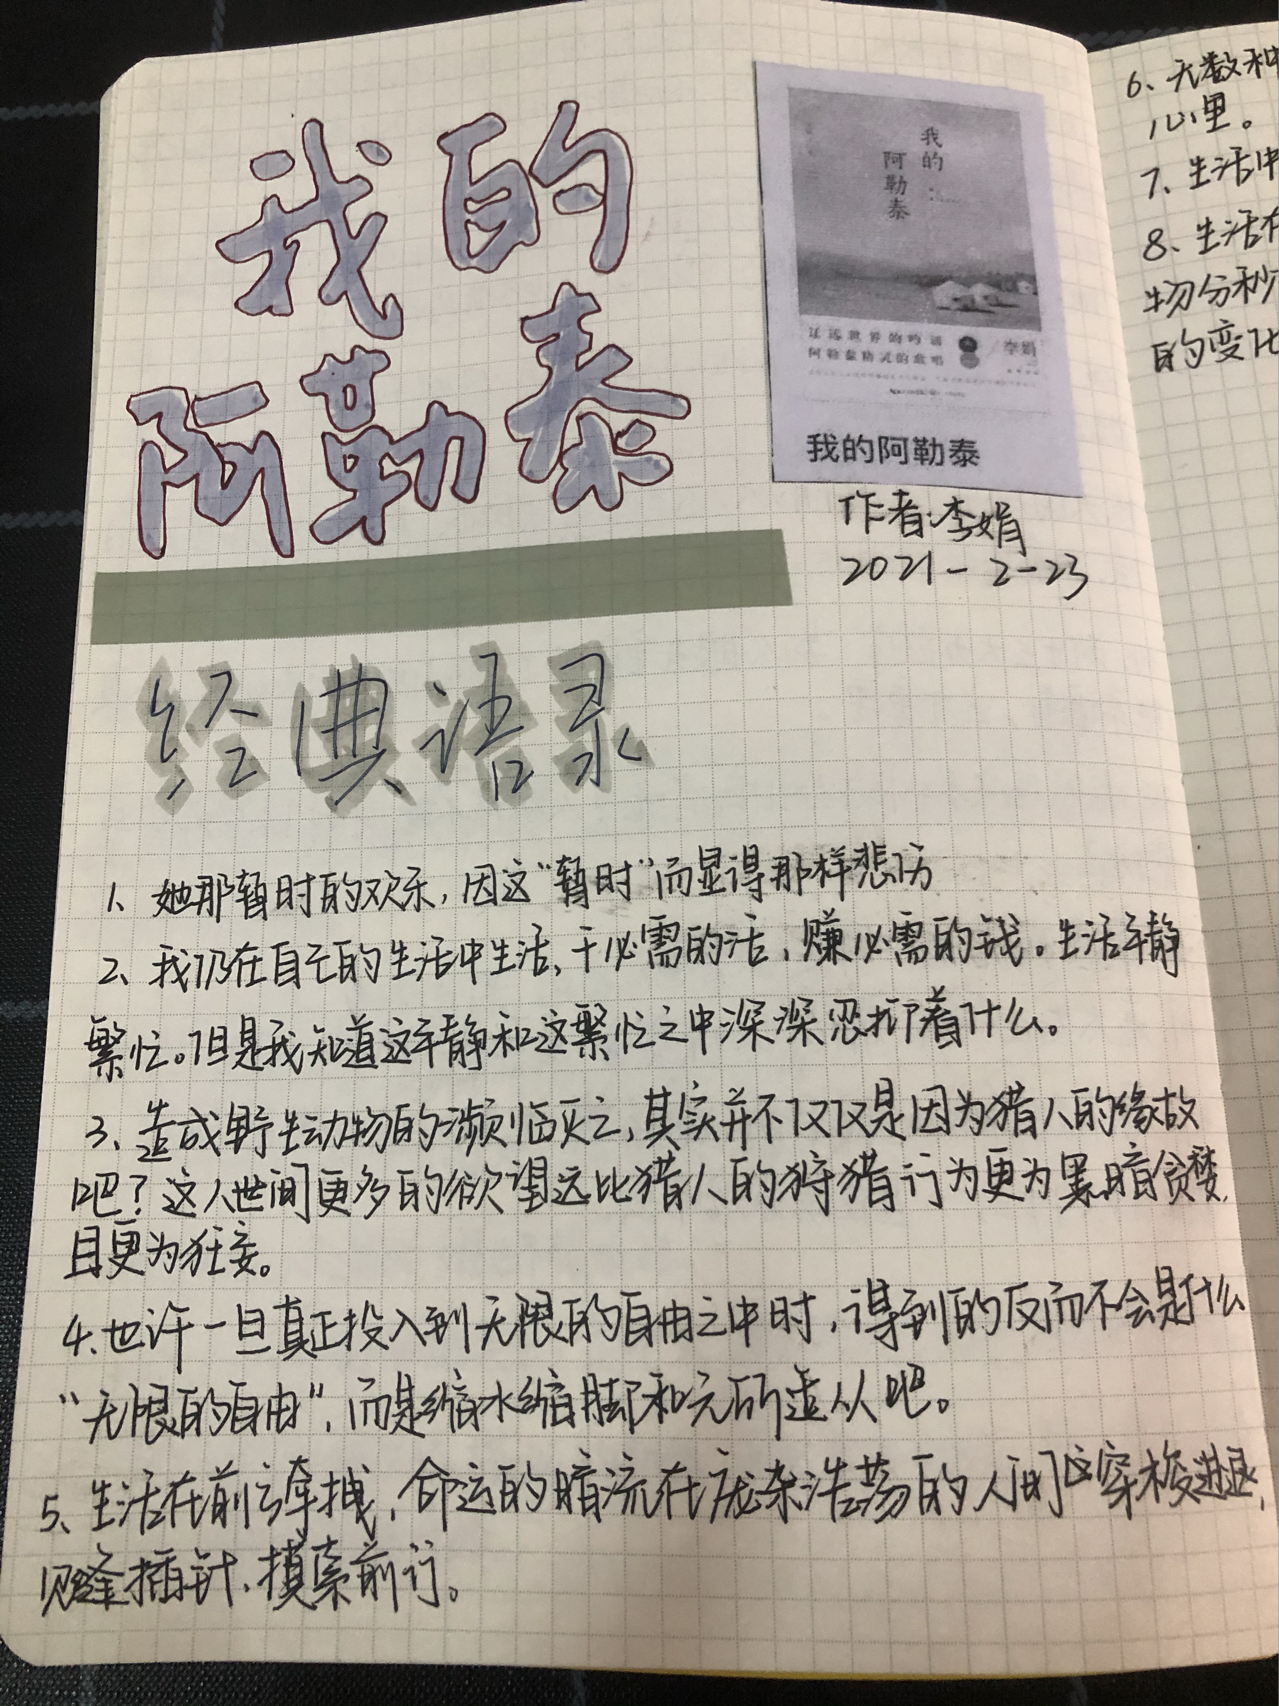 我的
阿勒泰
我的
阿勒泰
遥远世界的吟诵
阿勒泰精灵的歌唱
李娟
我的阿勒泰
作者:李娟
2021-2-23
经典语录
1、她那暂时的欢乐,因这“暂时”而显得那样悲伤
2、我仍在自己的生活中生活,干必需的活,赚必需的钱。生活平静
繁忙。但是我知道这平静和这繁忙之中深深忍抑着什么。
3、造成野生动物的濒临灭亡,其实并不仅仅是因为猎人的缘故
吧?这人世间更多的欲望远比猎人的狩猎行为更为黑暗贪婪,
且更为狂妄。
4.也许一旦真正投入到无限的自由之中时,得到的反而不会是什么
“无限的自由”,而是缩水缩脚和无所适从吧。
5、生活在前方牵拽,命运的暗流在庞杂浩荡的人间穿梭进退,
见缝插针、摸索前行。
6、无数种
心里。
7、生活中
8、生活在
物分秒
的变化